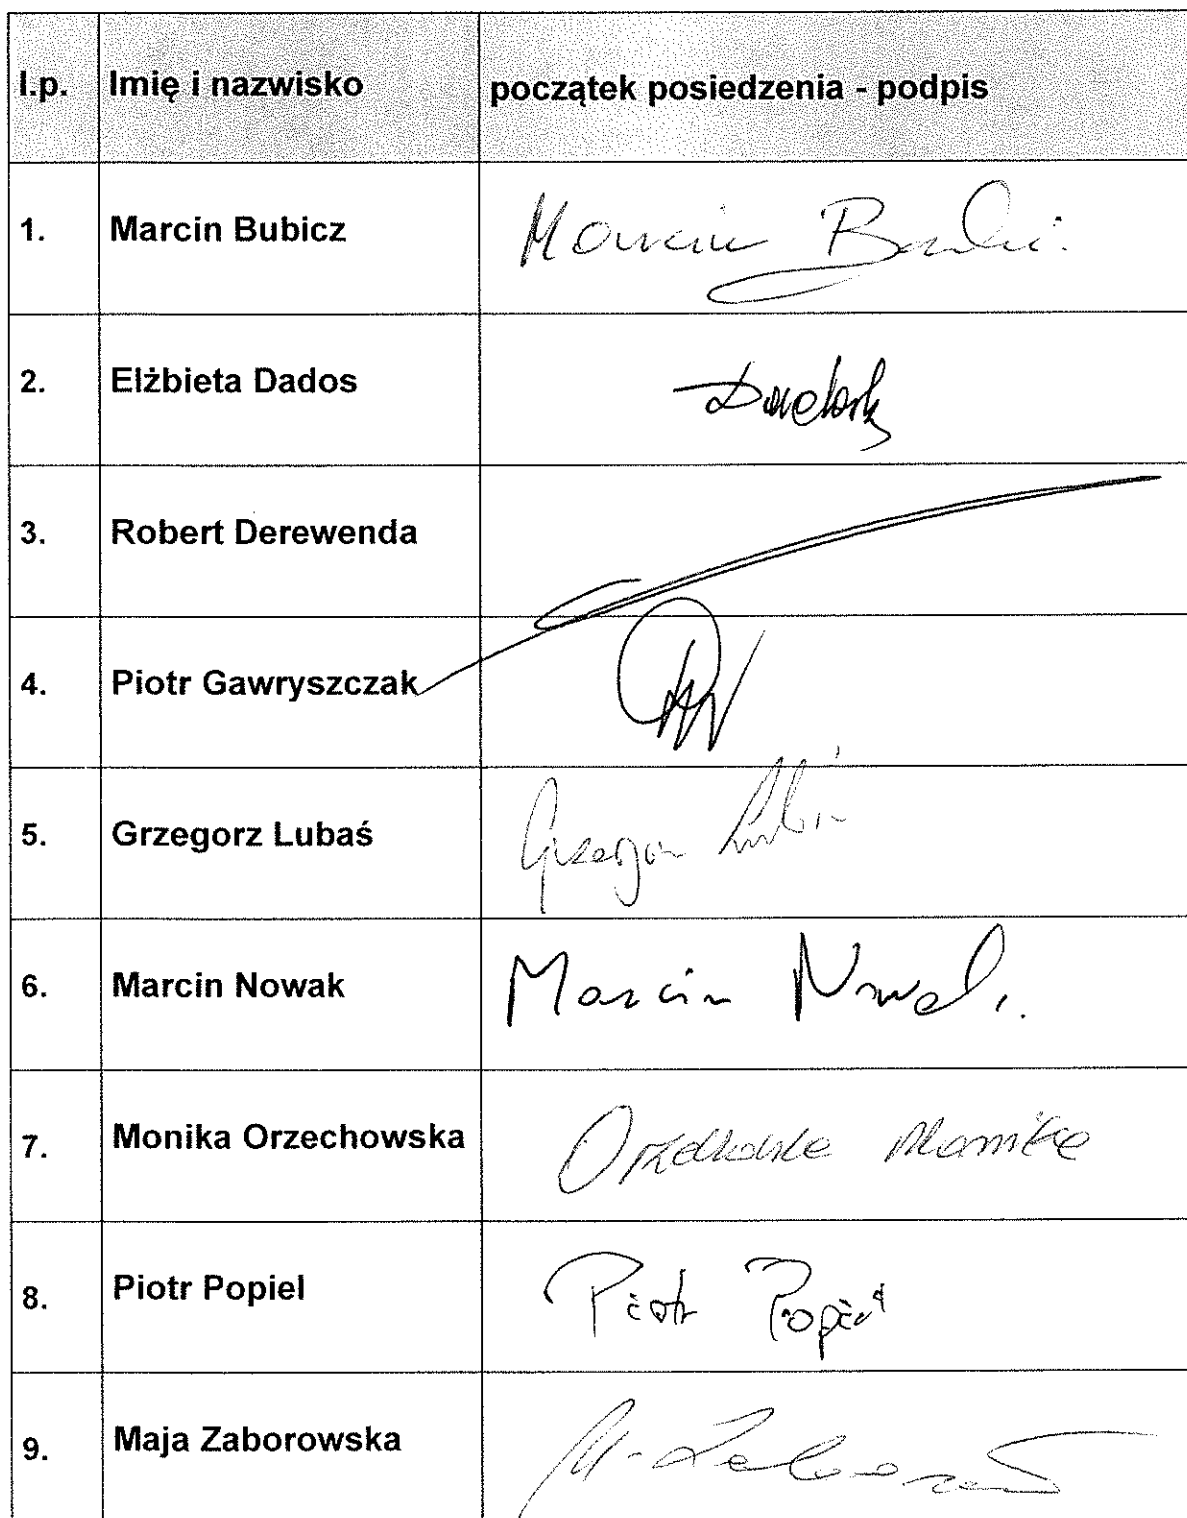 l.p. Imię i nazwisko początek posiedzenia - podpis
1. Marcin Bubicz Marcin
2. Elżbieta Dados
3. Robert Derewenda
4. Piotr Gawryszczak
5. Grzegorz Lubaś Grzegorz
6. Marcin Nowak Marcin Nowak
7. Monika Orzechowska Monika
8. Piotr Popiel Piotr Popiel
9. Maja Zaborowska